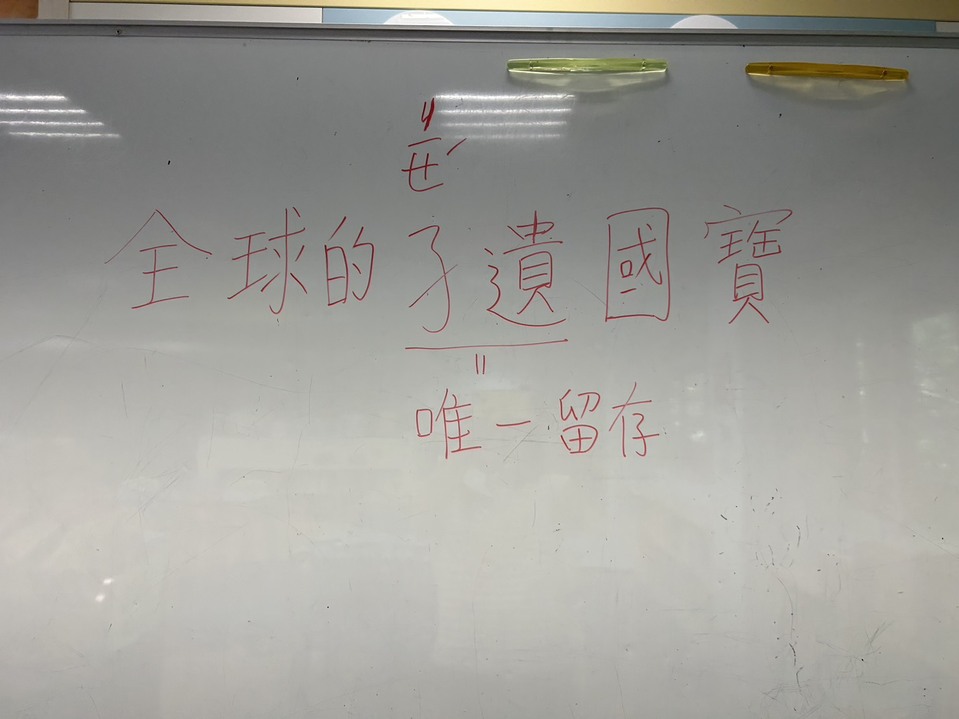 ㄐㄧㄝˊ
全球的孑遺國寶
||
唯一留存